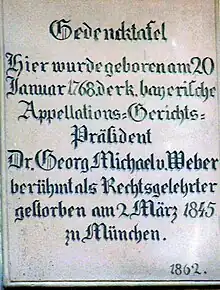 Gedencktafel
Hier wurde geboren am 20
Januar 1768. der k. bayerische
Appellations=Gerichts=
Präsident
Dr. Georg Michael v. Weber
berühmt als Rechtsgelehrter
gestorben am 2. März 1845
zu München.
1862.